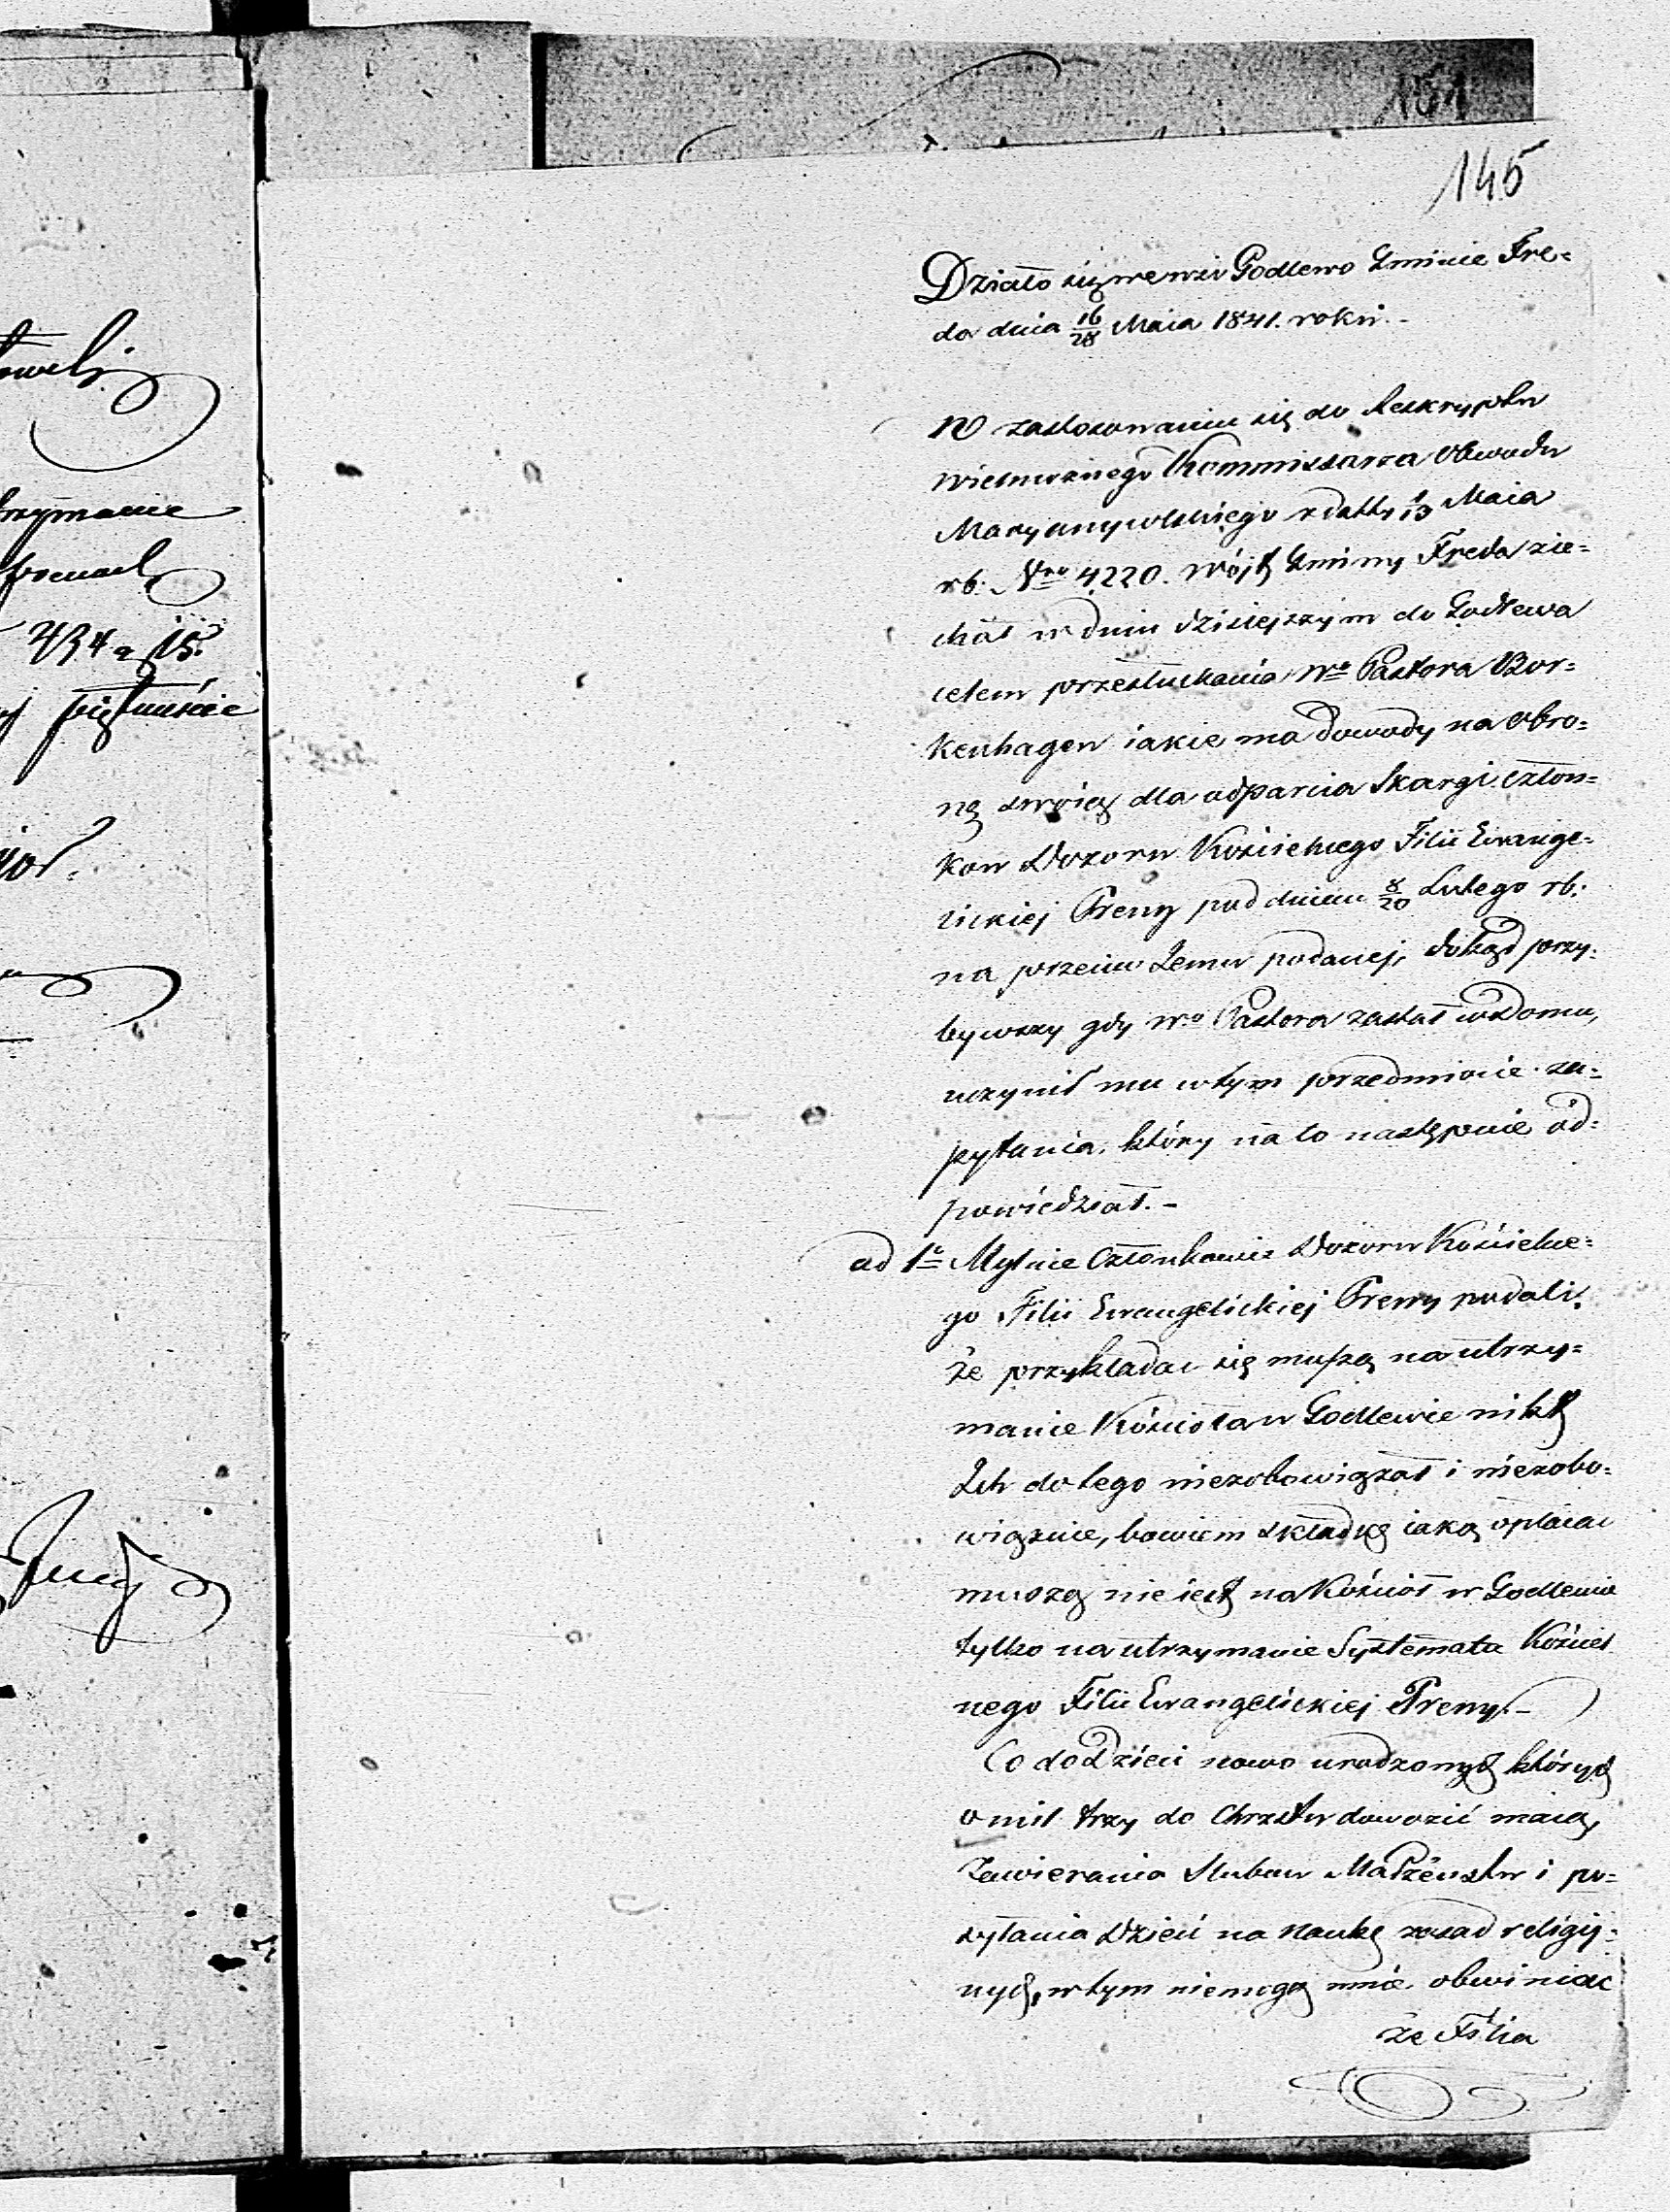 151
145
Działo się we wsi Godlewo Gminie Fre=
da dnia 16/28 Maia 1841. roku. -
W zastosowaniu się do Reskryptu
Wielmożnego Kommissarza Obwodu
Maryampolskiego z datty 1/13 Maia
rb. Nro 4220. Wójt Gminy Freda zie=
chał w dniu dzisiejszym do Godlewa
celem przesłuchania Wo Pastora Bor=
kenhagen iakie ma dowody na obro=
nę swoię dla odparcia Skargi człon=
kow Dozoru Kościelnego Filii Ewange=
lickiej Preny pod dniem 8/20 Lutego rb:
na przeciw Jemu podanej, dokąd przy=
bywszy gdy Wo Pastora zastał w Domu,
uczynił mu w tym przedmiocie za=
pytania, który na to następnie od=
powiedział. -
ad 1o Mylnie Członkowie Dozoru Kościelne=
go Filii Ewangelickiej Preny podali,
że przykładac się muszą na utrzy=
manie Kościoła w Godlewie nikt
Ich do tego niezobowiązał i niezobo=
wiąznie, bowiem składkę iaką opłacac
muszą nie iest na Kościoł w Godlewie
tylko na utrzymanie Systemata Kościel
nego Filii Ewangelickiej Preny. -
Co do Dzieci nowo urodzonych których
o mil trzy do Chrztu dowozić maią,
Zawierania Slubow Małżeństw i po=
syłania Dzieci na Naukę zasad religij=
nych, w tym niemogą mnie obwiniac
że Filia
trzymanie
434 15.